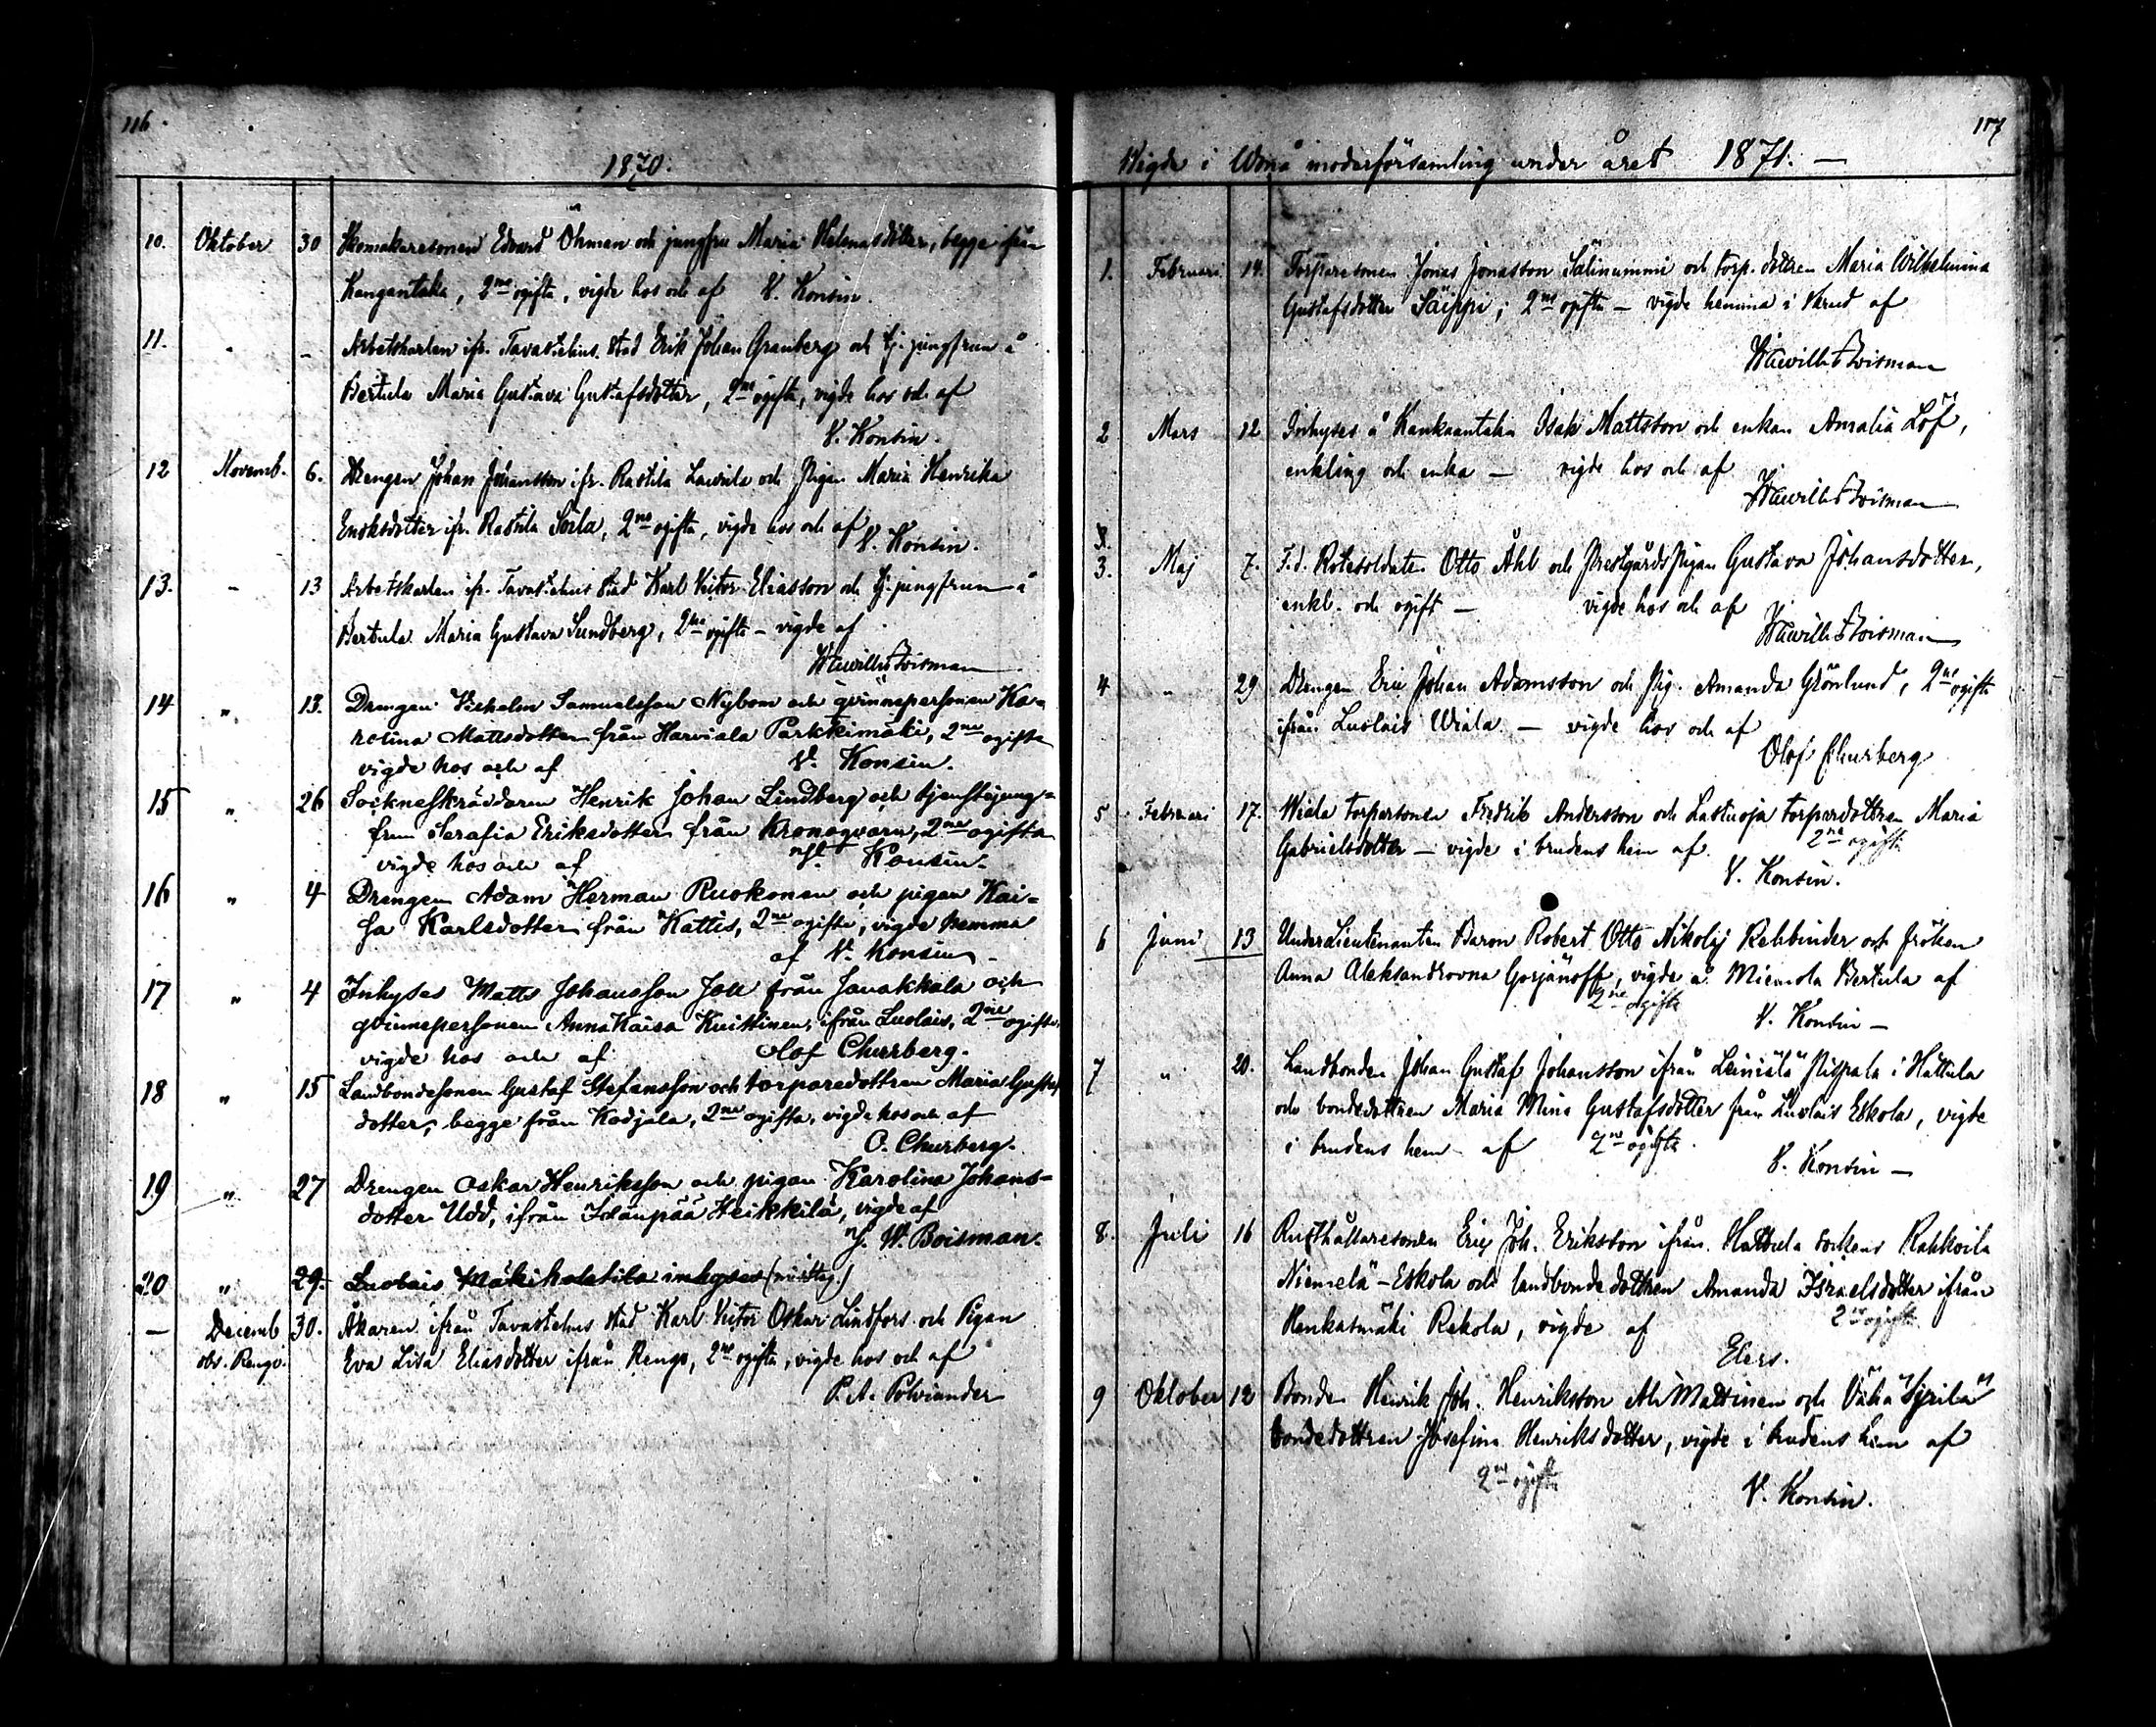 116
1870.
10. Oktober 30 Skomakaresonen Edvard Öhman och jungfru Maria Helenasdotter, begge från
Kangantaka, 2ne ogifta, vigde hos och af V. Konsin.
11. " - Arbetskarlen ifr. Tavastehus stad Erik Johan Granberg och tj. jungfrun å
Bertula Maria Gustava Gustafsdotter, 2ne ogifta, vigde hos och af
V. Konsin.
12 Novemb. 6. Drengen Johan Johansson ifr. Rastila Laurila och Pigan Maria Henrika
Enoksdotter ifr. Rastila Soila, 2ne ogifta, vigde hos och af V. Konsin.
13. - 13 Arbetskarlen ifr. Tavastehus stad Karl Viktor Eliasson och tj. jungfrun å
Bertula Maria Gustava Sundberg, 2ne ogifta - vigde af
Boisman
14 " 13. Drengen Vilhelm Samuelsson Nybom och qvinnspersonen Ka-
rolina Mattsdotter från Harviala Parkkimäki, 2ne ogifta
vigde hos och af V. Konsin.
15 " 26 Sockneskräddaren Henrik Johan Lindberg och tjenstejung-
frun Serafia Eriksdotter från Kronoqvarn, 2ne ogifta
vigde hos och af V. Konsin.
16 " 4 Drengen Adam Herman Ruokonen och pigan Kai-
sa Karlsdotter från Kattis, 2ne ogifta, vigde hemma
af V. Konsin
17 " 4 Inhyses Matts Johansson Joll från Janakkala och
qvinnspersonen Anna Kaisa Knittinen, ifrån Luolais, 2ne ogifta,
vigde hos och af Olof Churberg.
18 " 15 Landbondesonen Gustaf Stefansson och torparedottren Maria Gustafs
dotter, begge från Kodjala, 2ne ogifta, vigde hos och af
O. Churberg.
19 " 27 Drengen Oskar Henriksson och pigan Karolina Johans-
dotter Udd, ifrån Idänpää Heikkilä, vigde af
W. Boisman.
20 " 29. Luolais Mäkiholstila inhyses (misstag.)
— Decemb 30. Åkaren ifrån Tavastehus stad Karl Viktor Oskar Lindfors och Pigan
obs. Rengo. Eva Lisa Eliasdotter ifrån Rengo, 2ne ogifta, vigde hos och af
P. A. Polviander
117
Vigde i Wånå moderförsamling under året 1871. —
1. Februari 14. Torparesonen Jonas Jonasson Salinummi och torp. dottren Maria Wilhelmina
Gustafsdotter Säippi; 2ne ogifta — vigde hemma i af
Boisman
2 Mars 12 Inhyses å Kankaantaka Isak Mattsson och enkan Amalia Löf,
enkling och enka — vigde hos och af
Boisman
3.
3. Maj 7. F.d. Rotesoldaten Otto Åhl och Prestgårds Pigan Gustava Johansdotter,
enkl. och ogift — vigde hos och af
Boisman
4 " 29 Drengen Eric Johan Adamsson och Pig. Amanda Grönlund, 2ne ogifta
ifrån Luolais Wiala. — vigde hos och af
Olof Churberg
5 Februari 17. Wiala torparsonen Fredrik Andersson och Lastuoja torpardottren Maria
Gabrielsdotter — vigde i brudens hem af 2ne ogifta
V. Konsin.
6 Juni 13 UnderLieutenanten Baron Robert Otto Nikolaj Rehbinder och fröken
Anna Aleksandrovna Gorjänoff, vigde å Miemola Bertula af
2ne ogifta V. Konsin —
7 " 20. Landbonden Johan Gustaf Johansson ifrån Leiniälä Pispala i Hattula
och bondedottren Maria Mina Gustafsdotter från Luolais Eskola, vigde
i brudens hem af 2ne ogifta.
V. Konsin —
8. Juli 16 Rusthållaresonen Eric Joh. Eriksson ifrån Hattula sockens Rahkoila
Niemelä-Eskola och landbondedottren Amanda Israelsdotter ifrån
Henkasmäki Rekola, vigde af 2ne ogifta
Elers.
9 Oktober 12 Bonden Henrik Joh. Henriksson Ali Mattinen och Vähä "Syrilä"
bondedottren Josefina Henriksdotter, vigde i brudens hem af
2ne ogifta V. Konsin.